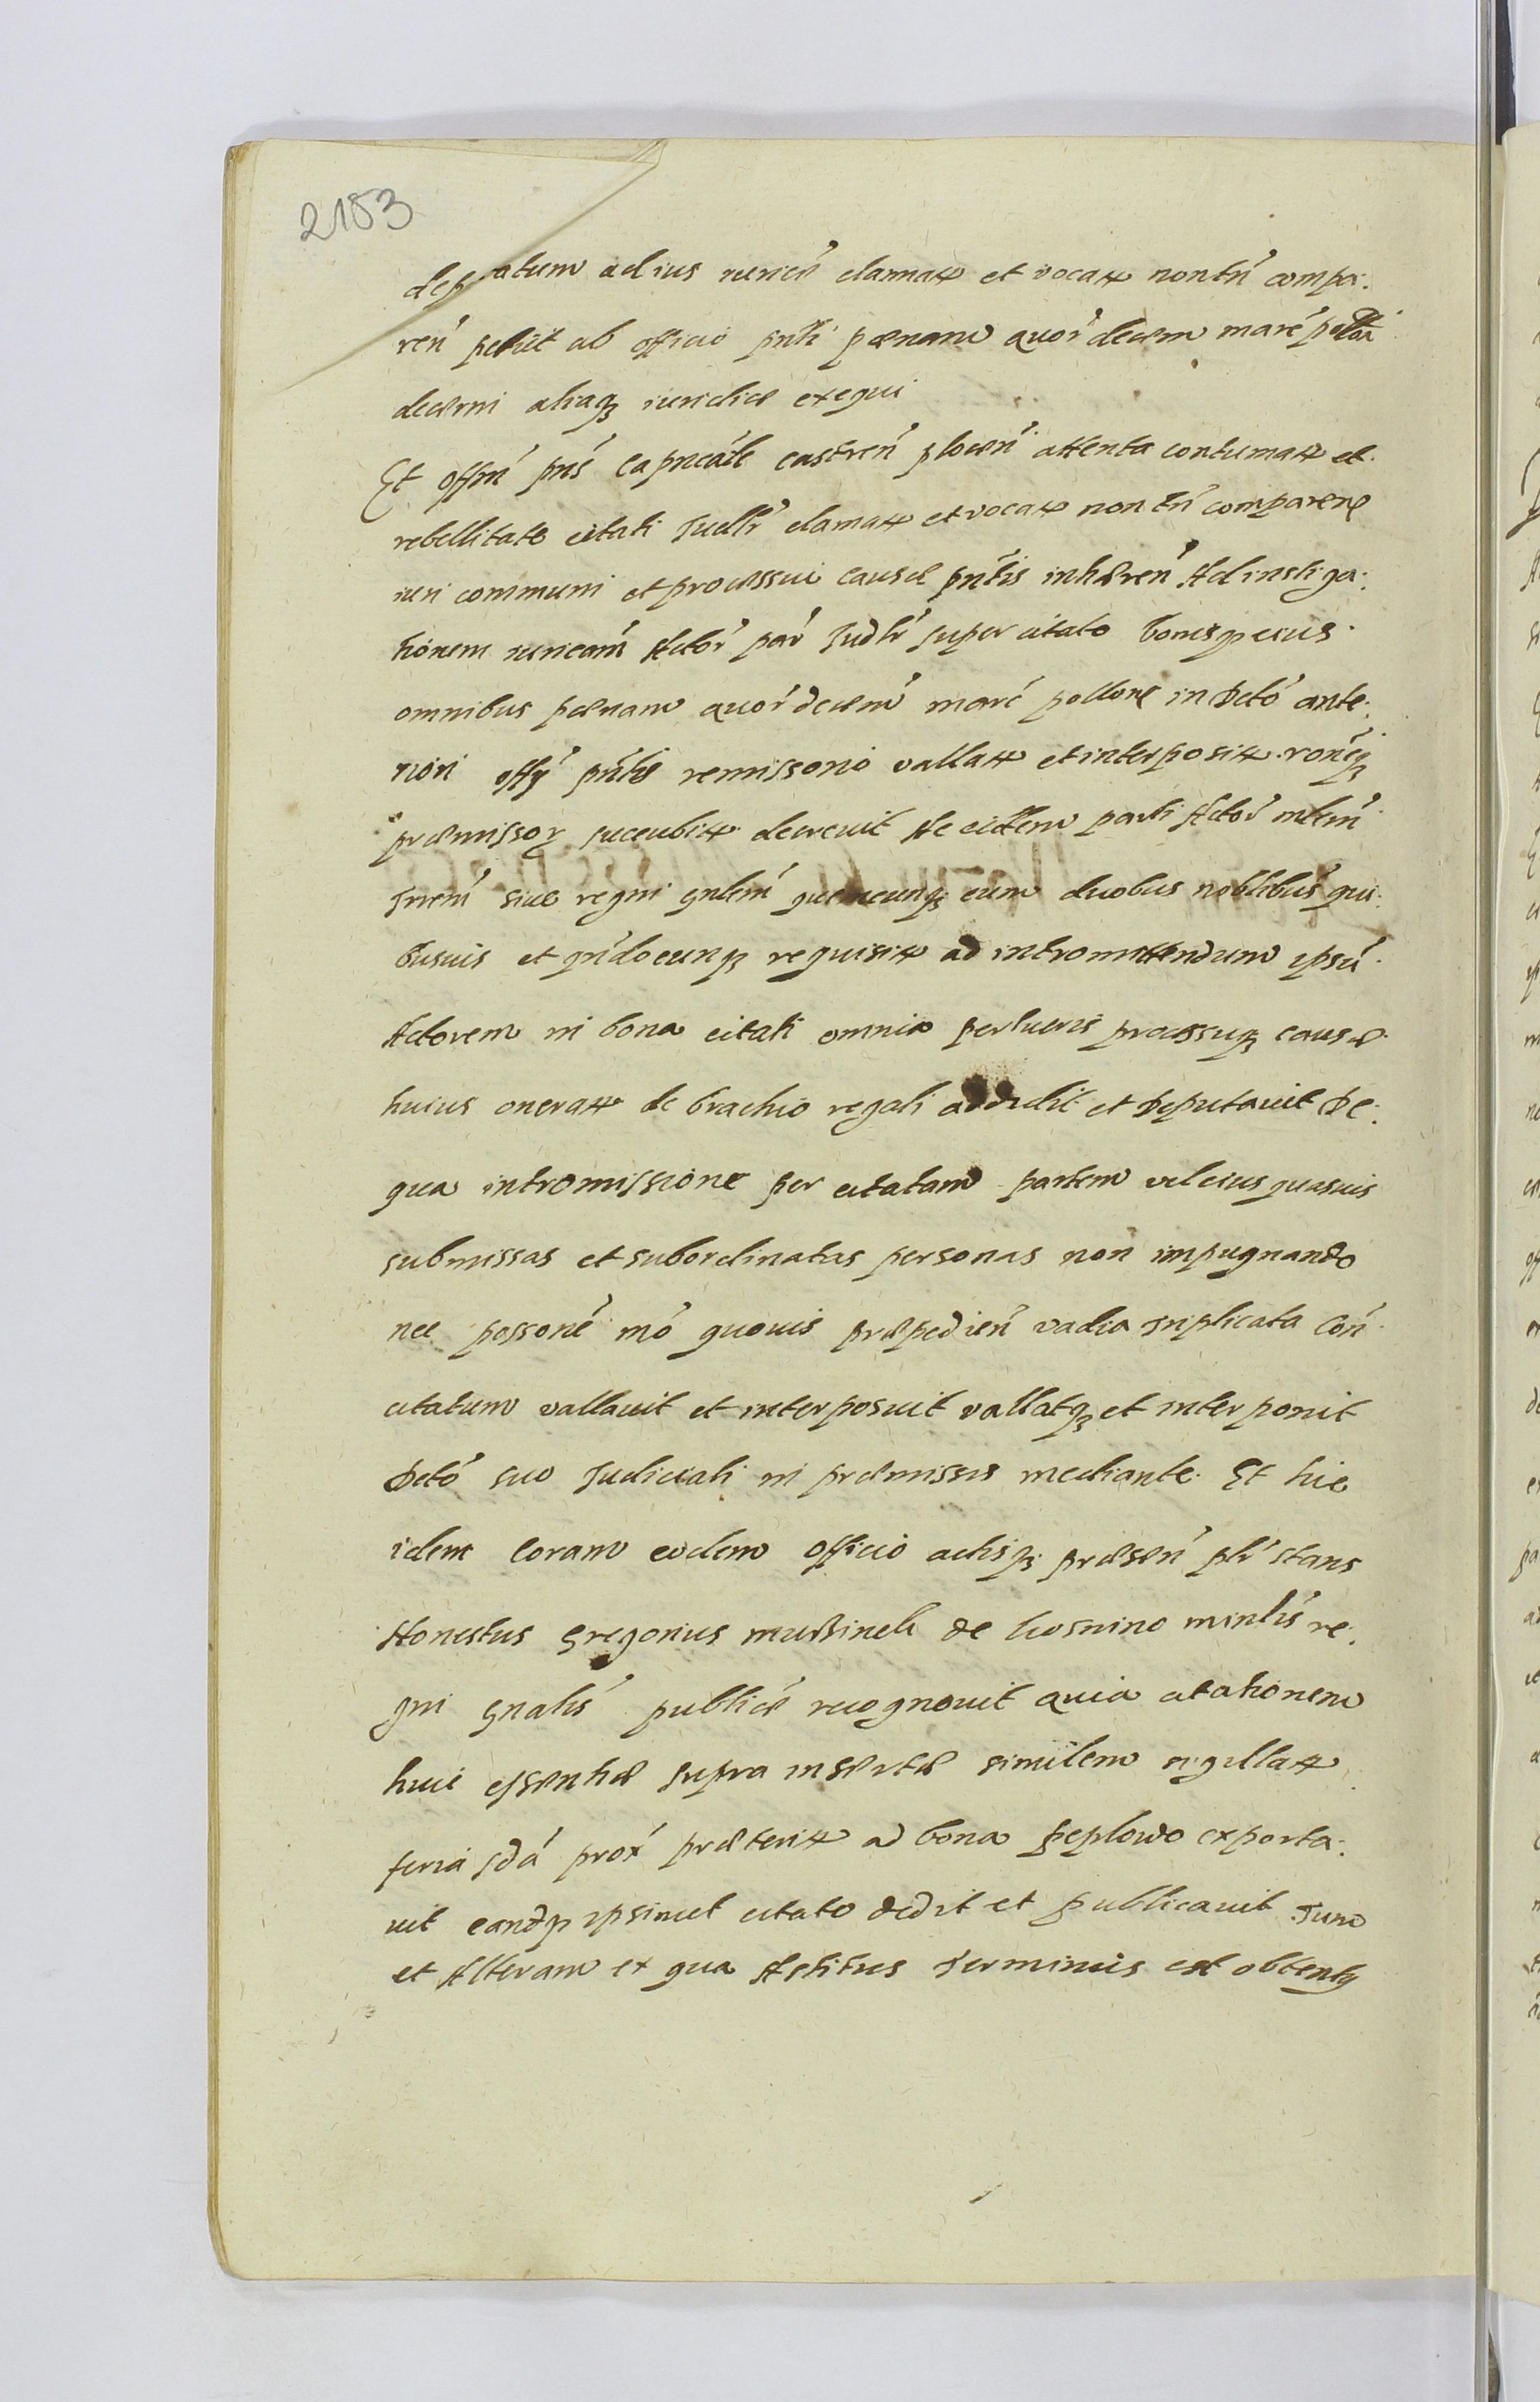 2183
atum ad ius iuridce clamat et vocat non tn compa:
ren petiit ab officio pnti poenam quor decem marc pollon
decerni aliaqz iuridice exequi
Et offm pns Capneale castren plocen attenta contumat et
rebellitate citati Judlr clamat et vocat non tn comparen
iuri communi et processui causae pntis inhaeren Ad instiga:
tionem Actor par Judlr super citato bonisqz eius
omnibus poenam quor decem marc pollone in Dcto ante:
riori offy pntis remissorio vallat et interposit roneqz
praemissor succubit decrevit Ac eidem parti Actor mlem
Jurem sive regni gnlem quemcunqz cum duobus noblibus qui:
busuis et qndocunqz requisit ad intromittendum ipsu
Actorem in bona citati omnia perlucris processuqz causae
huius onerat de brachio regali addidit et deputavit De
qua intromissione per citatam partem vel eius quasuis
submissas et subordinatas personas non impugnando
nec possone mo quouis praepedien vadia Triplicata Con
citatum vallavit et interposuit vallatqz et interponit
Dcto suo Judiciali in praemissis mediante. Et hic
idem Coram eodem officio actisqz praesen plr stans
Honestus Gregorius de minlis re:
gni gnalis publice recognovit Quia citationem
huic essentiae supra insertae similem sigillat
feria sda prox praeterit ad bona exporta:
uit eandqz ipsimet citato dedit et publicavit Tum
et Alteram ex qua Astitus Terminus est obtentus